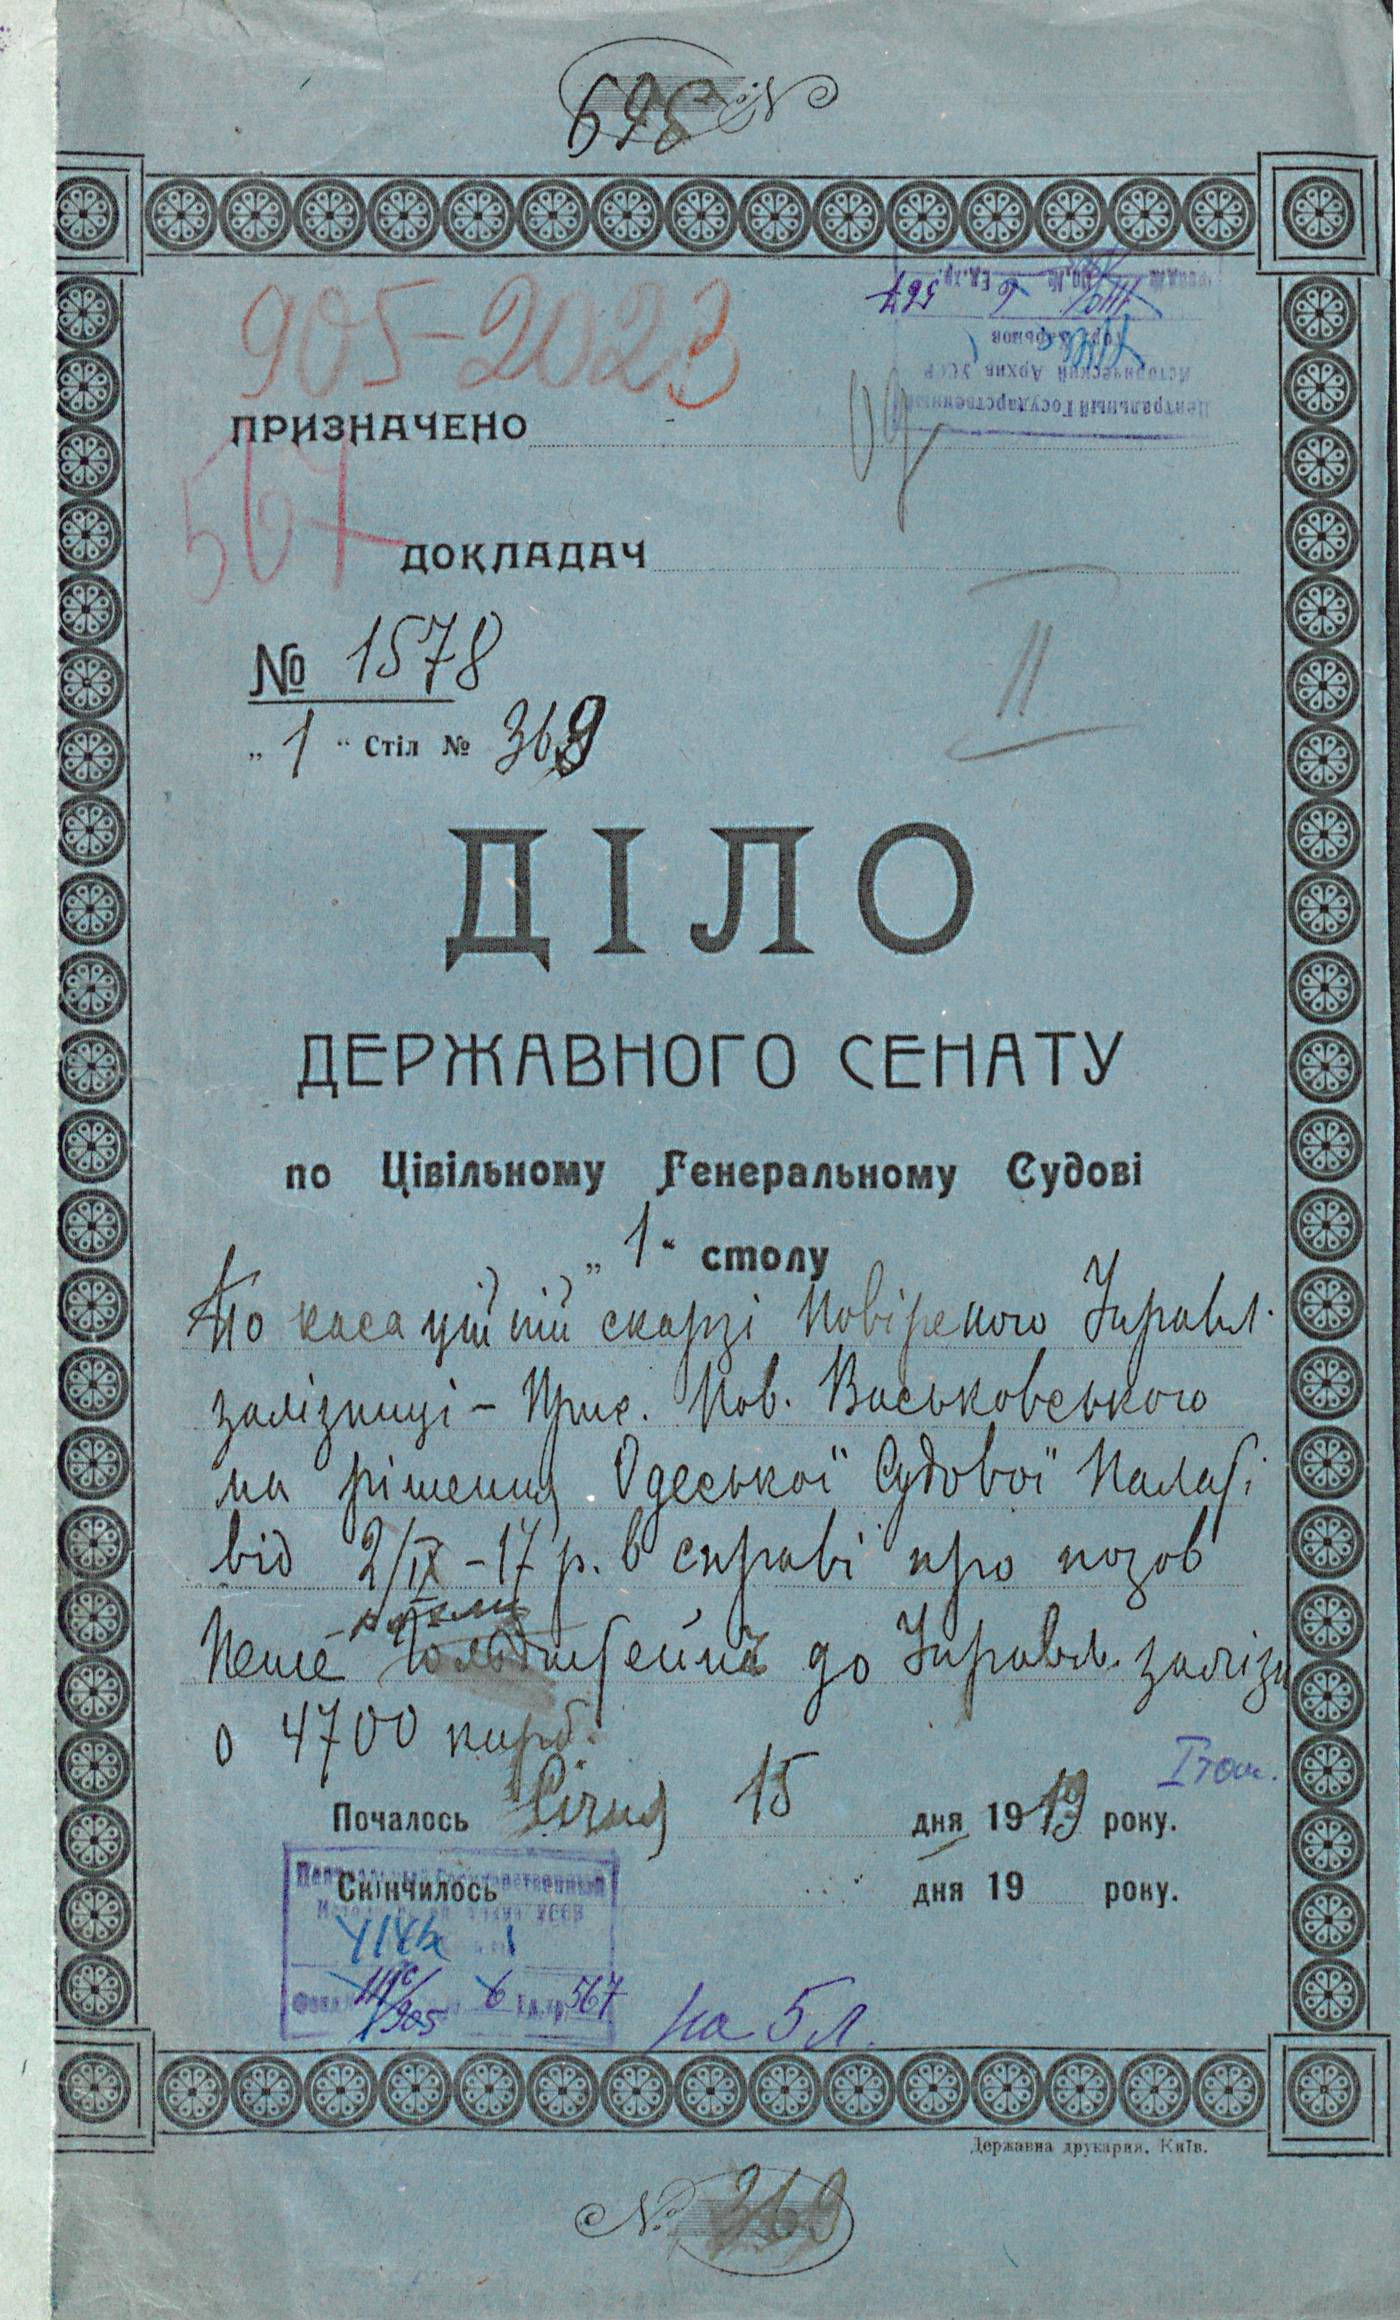 696 №
905-2023
Центральный Государственный
Исторический Архив УССР
гор. Харьков
6 Ед.хр. 567
ПРИЗНАЧЕНО
567
ДОКЛАДАЧ
№ 1578
II
„1“ Стіл № 369
ДІЛО
ДЕРЖАВНОГО СЕНАТУ
по Цівільному Генеральному Судові
„1“ столу
По касаційній скарзі Повіреного Управл.
залізниці – Прис. Пов. Васьковського
на рішення Одеської Судової Палаті
від 2/IX – 17 р. в справі про позов
до Управл. залізн
о 4700 карб.
I том.
Почалось Січня 15 дня 1919 року.
Скінчилось дня 19 року.
Центральный Государственный
Исторический Архив УССР
905 6 Ед.хр. 567
на 5 л.
Державна друкарня. Київ.
№ 369